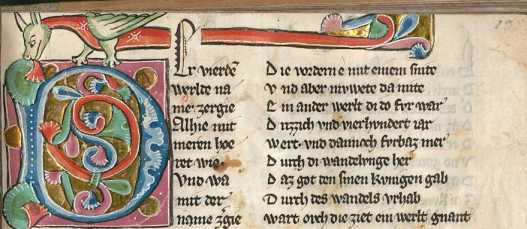 DEr vierde
werlde na
me zergie
Alhie mit
meren hoe
ret wie
Vnd wa
mit der
name zgie
Die vordern e mit einem snite
Vnd aber nywete da mite
Ein ander werlt di do fvr war
Drizzich vnd vierhvndert iar
Wert · vnd dannoch fvrbaz mer
Dvrch di wandelvnge her
Daz got den sinen kvnigen gab
Dvrch des wandels vrhab
Wart ovch die ziet ein werlt gnant